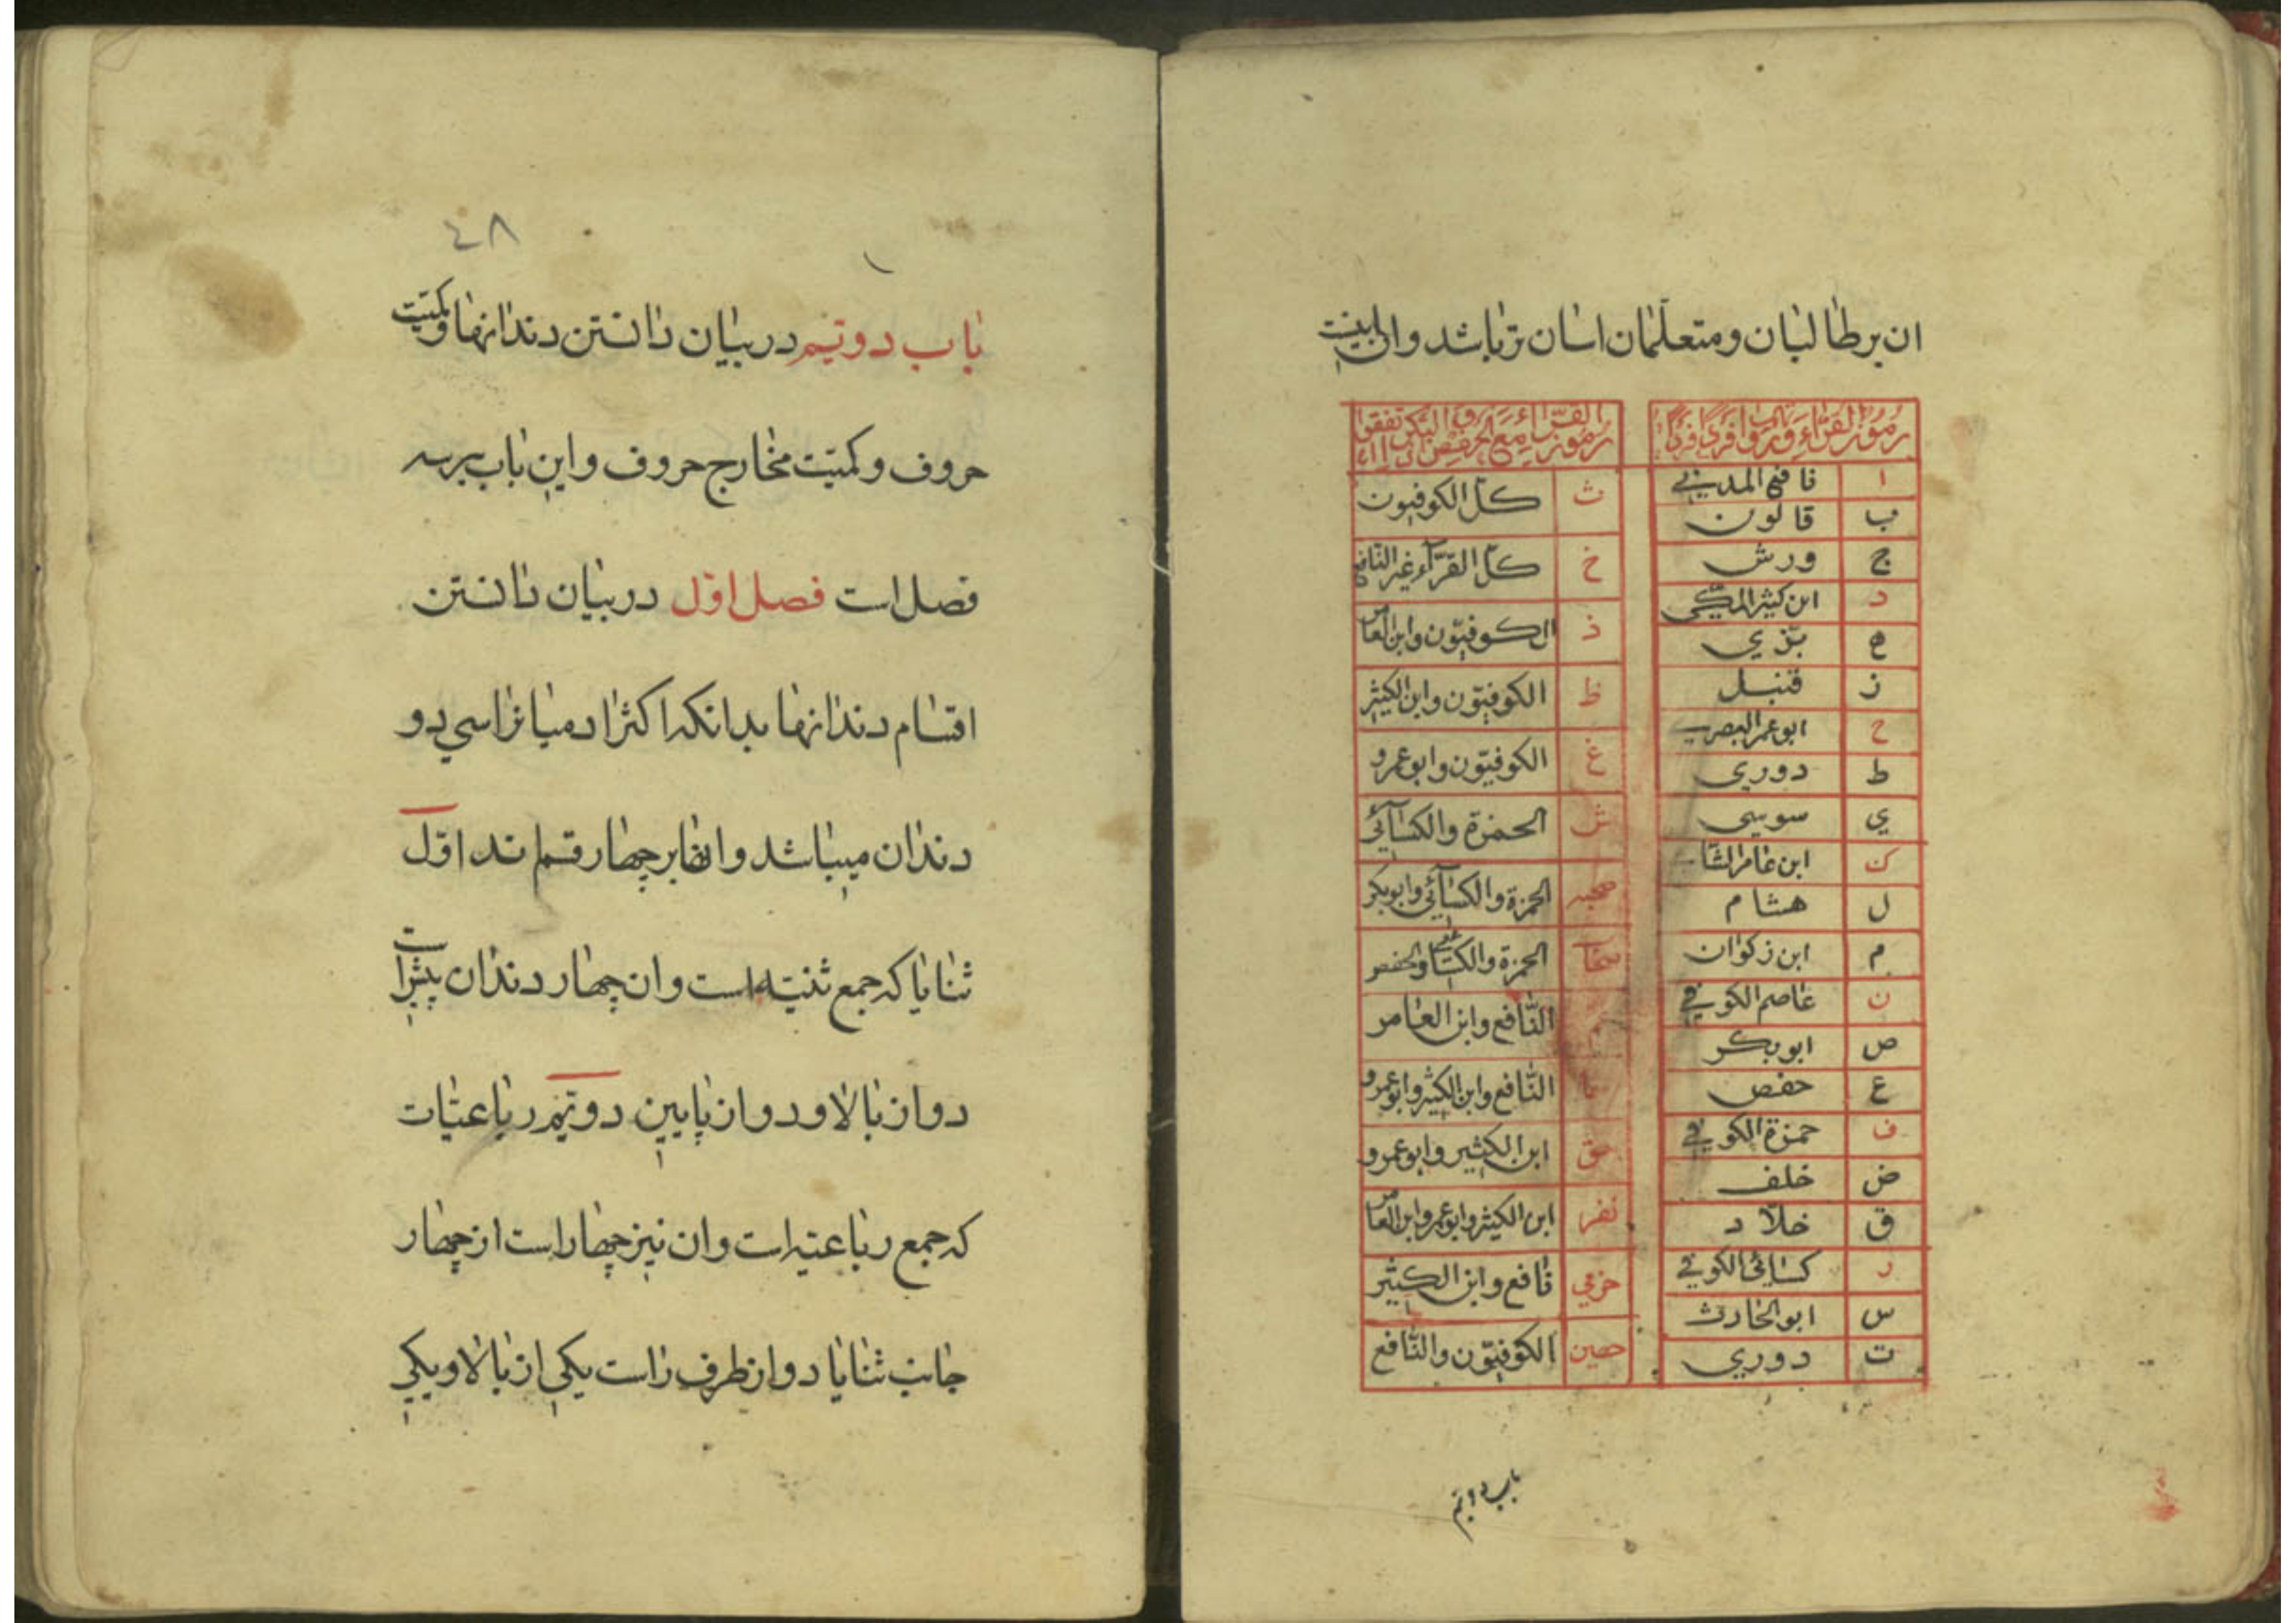 ان بر طالبان و متعلّمان اسان تر باشد و ان اینست
رموز القرّاء و رواتهم فردا فردا
ا نافع المدینی
ب قالون
ج ورش
د ابن کثیر المکّی
ه بزّی
ز قنبل
ح ابو عمر البصری
ط دوری
ی سوسی
ک ابن عامر الشا
ل هشام
م ابن زکوان
ن عاصم الکوفی
ص ابو بکر
ع حفص
ف حمزة الکوفی
ض خلف
ق خلّاد
ر کسائی الکوفی
س ابو الحارث
ت دوری
رموز القرّاء مع
ث کلّ الکوفیون
خ کلّ القرّآء غیر النافع
ذ الکوفیّون و ابن العامر
ظ الکوفیّون و ابن الکثیر
غ الکوفیّون و ابو عمرو
ش الحمزة و الکسآئی
صحبه الحمزة و الکسآئی و ابو بکر
صحاب الحمزة و الکسآئی و الحفص
النّافع و ابن العامر
سما النّافع و ابن الکثیر و ابو عمرو
حق ابن الکثیر و ابو عمرو
نفر ابن الکثیر و ابو عمرو و ابن العامر
حرمی نافع و ابن الکثیر
حصین الکوفیّون و النّافع
باب دویّم
٤٨
باب دویّم در بیان دانستن دندانها و کمّیّت
حروف و کمیّت مخارج حروف و این باب بر سه
فصل است فصل اوّل در بیان دانستن
اقسام دندانها بدانکه اکثر ادمیانرا سی و دو
دندان میباشد و انها بر چهار قسم اند اوّل
ثنایا که جمع ثنیّه است و ان چهار دندان پیش است
دو از بالا و دو از پایین دویّم رباعیّات
که جمع رباعیّه است و ان نیز چهار است از چهار
جانب ثنایا دو از طرف راست یکی از بالا و یکی